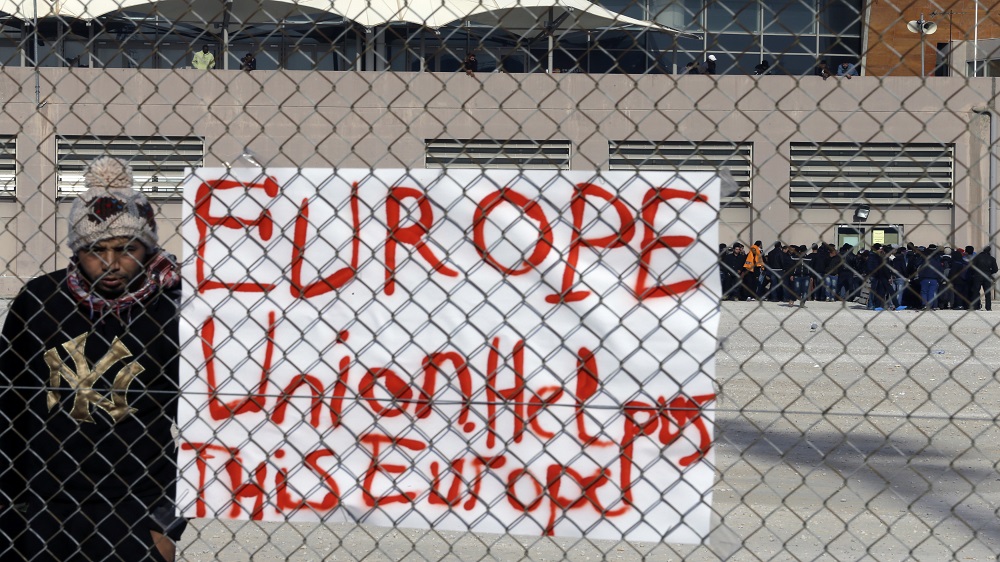 EUROPE
Union.HeLp
This Europe
NY